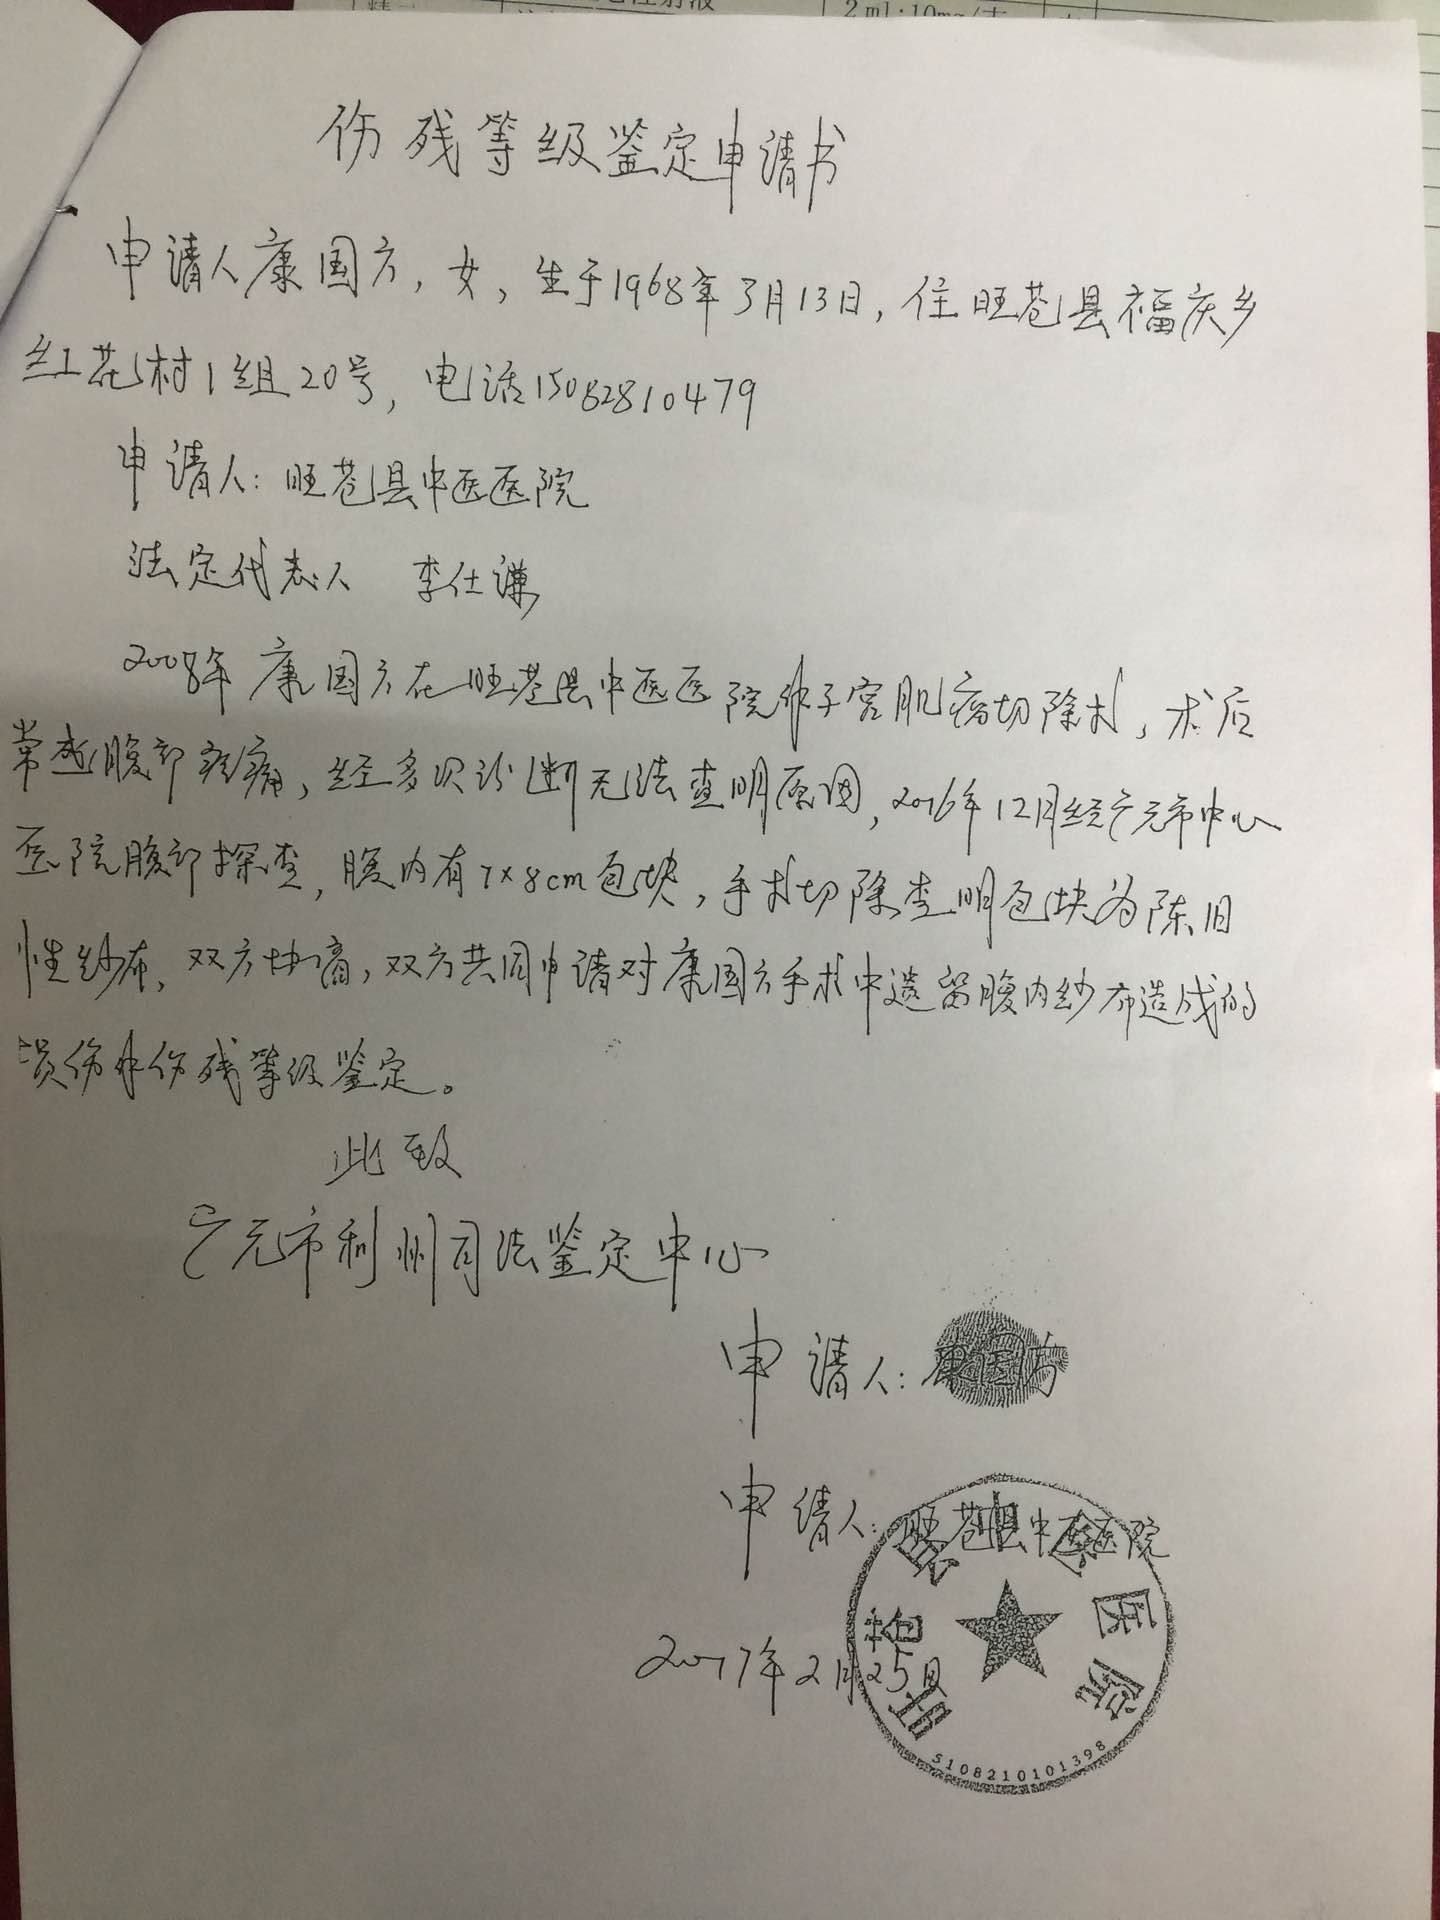 2ml:10mg/支
伤残等级鉴定申请书
申请人康国方，女，生于1968年3月13日，住旺苍县福庆乡
红花村1组20号，电话15082810479
申请人：旺苍县中医医院
法定代表人 李仕谦
2008年康国方在旺苍县中医医院作子宫肌瘤切除术，术后
常感腹部疼痛，经多次诊断无法查明原因，2016年12月经广元市中心
医院腹部探查，腹内有7×8cm包块，手术切除查明包块为陈旧
性纱布，双方协商，双方共同申请对康国方手术中遗留腹内纱布造成的
损伤作伤残等级鉴定。
此致
广元市利州司法鉴定中心
申请人：康国方
申请人：旺苍县中医医院
2017年2月25日
旺苍县中医医院
5108210101398